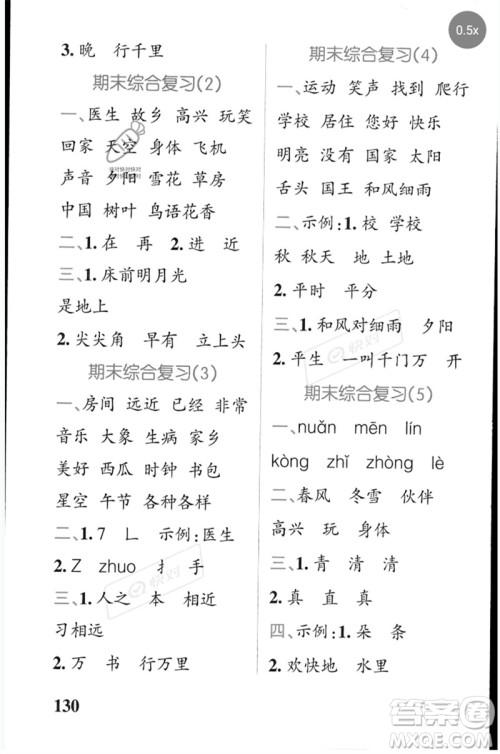 0.5x
3.晚 行千里
期末综合复习(2)
一、医生 故乡 高兴 玩笑
回家 天空 身体 飞机
声音 夕阳 雪花 草房
中国 树叶 鸟语花香
二、1.在 再 2.进 近
三、1.床前明月光
是地上
2.尖尖角 早有 立上头
期末综合复习(3)
一、房间 远近 已经 非常
音乐 大象 生病 家乡
美好 西瓜 时钟 书包
星空 午节 各种各样
二、1.7 乚 示例:医生
2.Z zhuo 扌 手
三、1.人之 本 相近
习相远
2.万 书 行万里
130
期末综合复习(4)
一、运动 笑声 找到 爬行
学校 居住 您好 快乐
明亮 没有 国家 太阳
舌头 国王 和风细雨
二、示例:1.校 学校
秋 秋天 地 土地
2.平时 平分
三、1.和风对细雨 夕阳
2.平生 一叫千门万 开
期末综合复习(5)
一、nuǎn mēn lín
kòng zhǐ zhòng lè
二、春风 冬雪 伙伴
高兴 玩 身体
三、1.青 清 清
2.真 直 真
四、示例:1.朵 条
2.欢快地 水里
快对
快对
答案圈
MXQE.COM